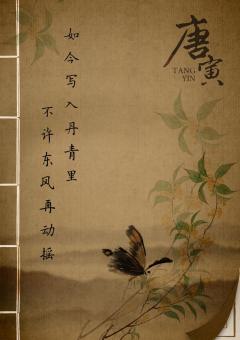 唐寅
TANG
YIN
如今写入丹青里
不许东风再动摇